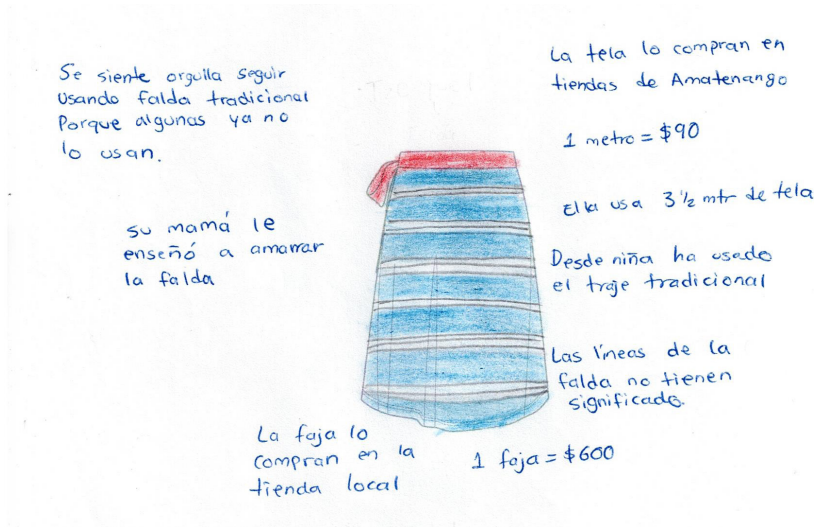 Se siente orgulla seguir
usando falda tradicional
Porque algunas ya no
lo usan.
su mamá le
enseñó a amarrar
la falda
La faja lo
compran en la
tienda local
1 faja = $600
La tela lo compran en
tiendas de Amatenango
1 metro = $90
Ella usa 3 1/2 mtr de tela
Desde niña ha usado
el traje tradicional
Las líneas de la
falda no tienen
significado.